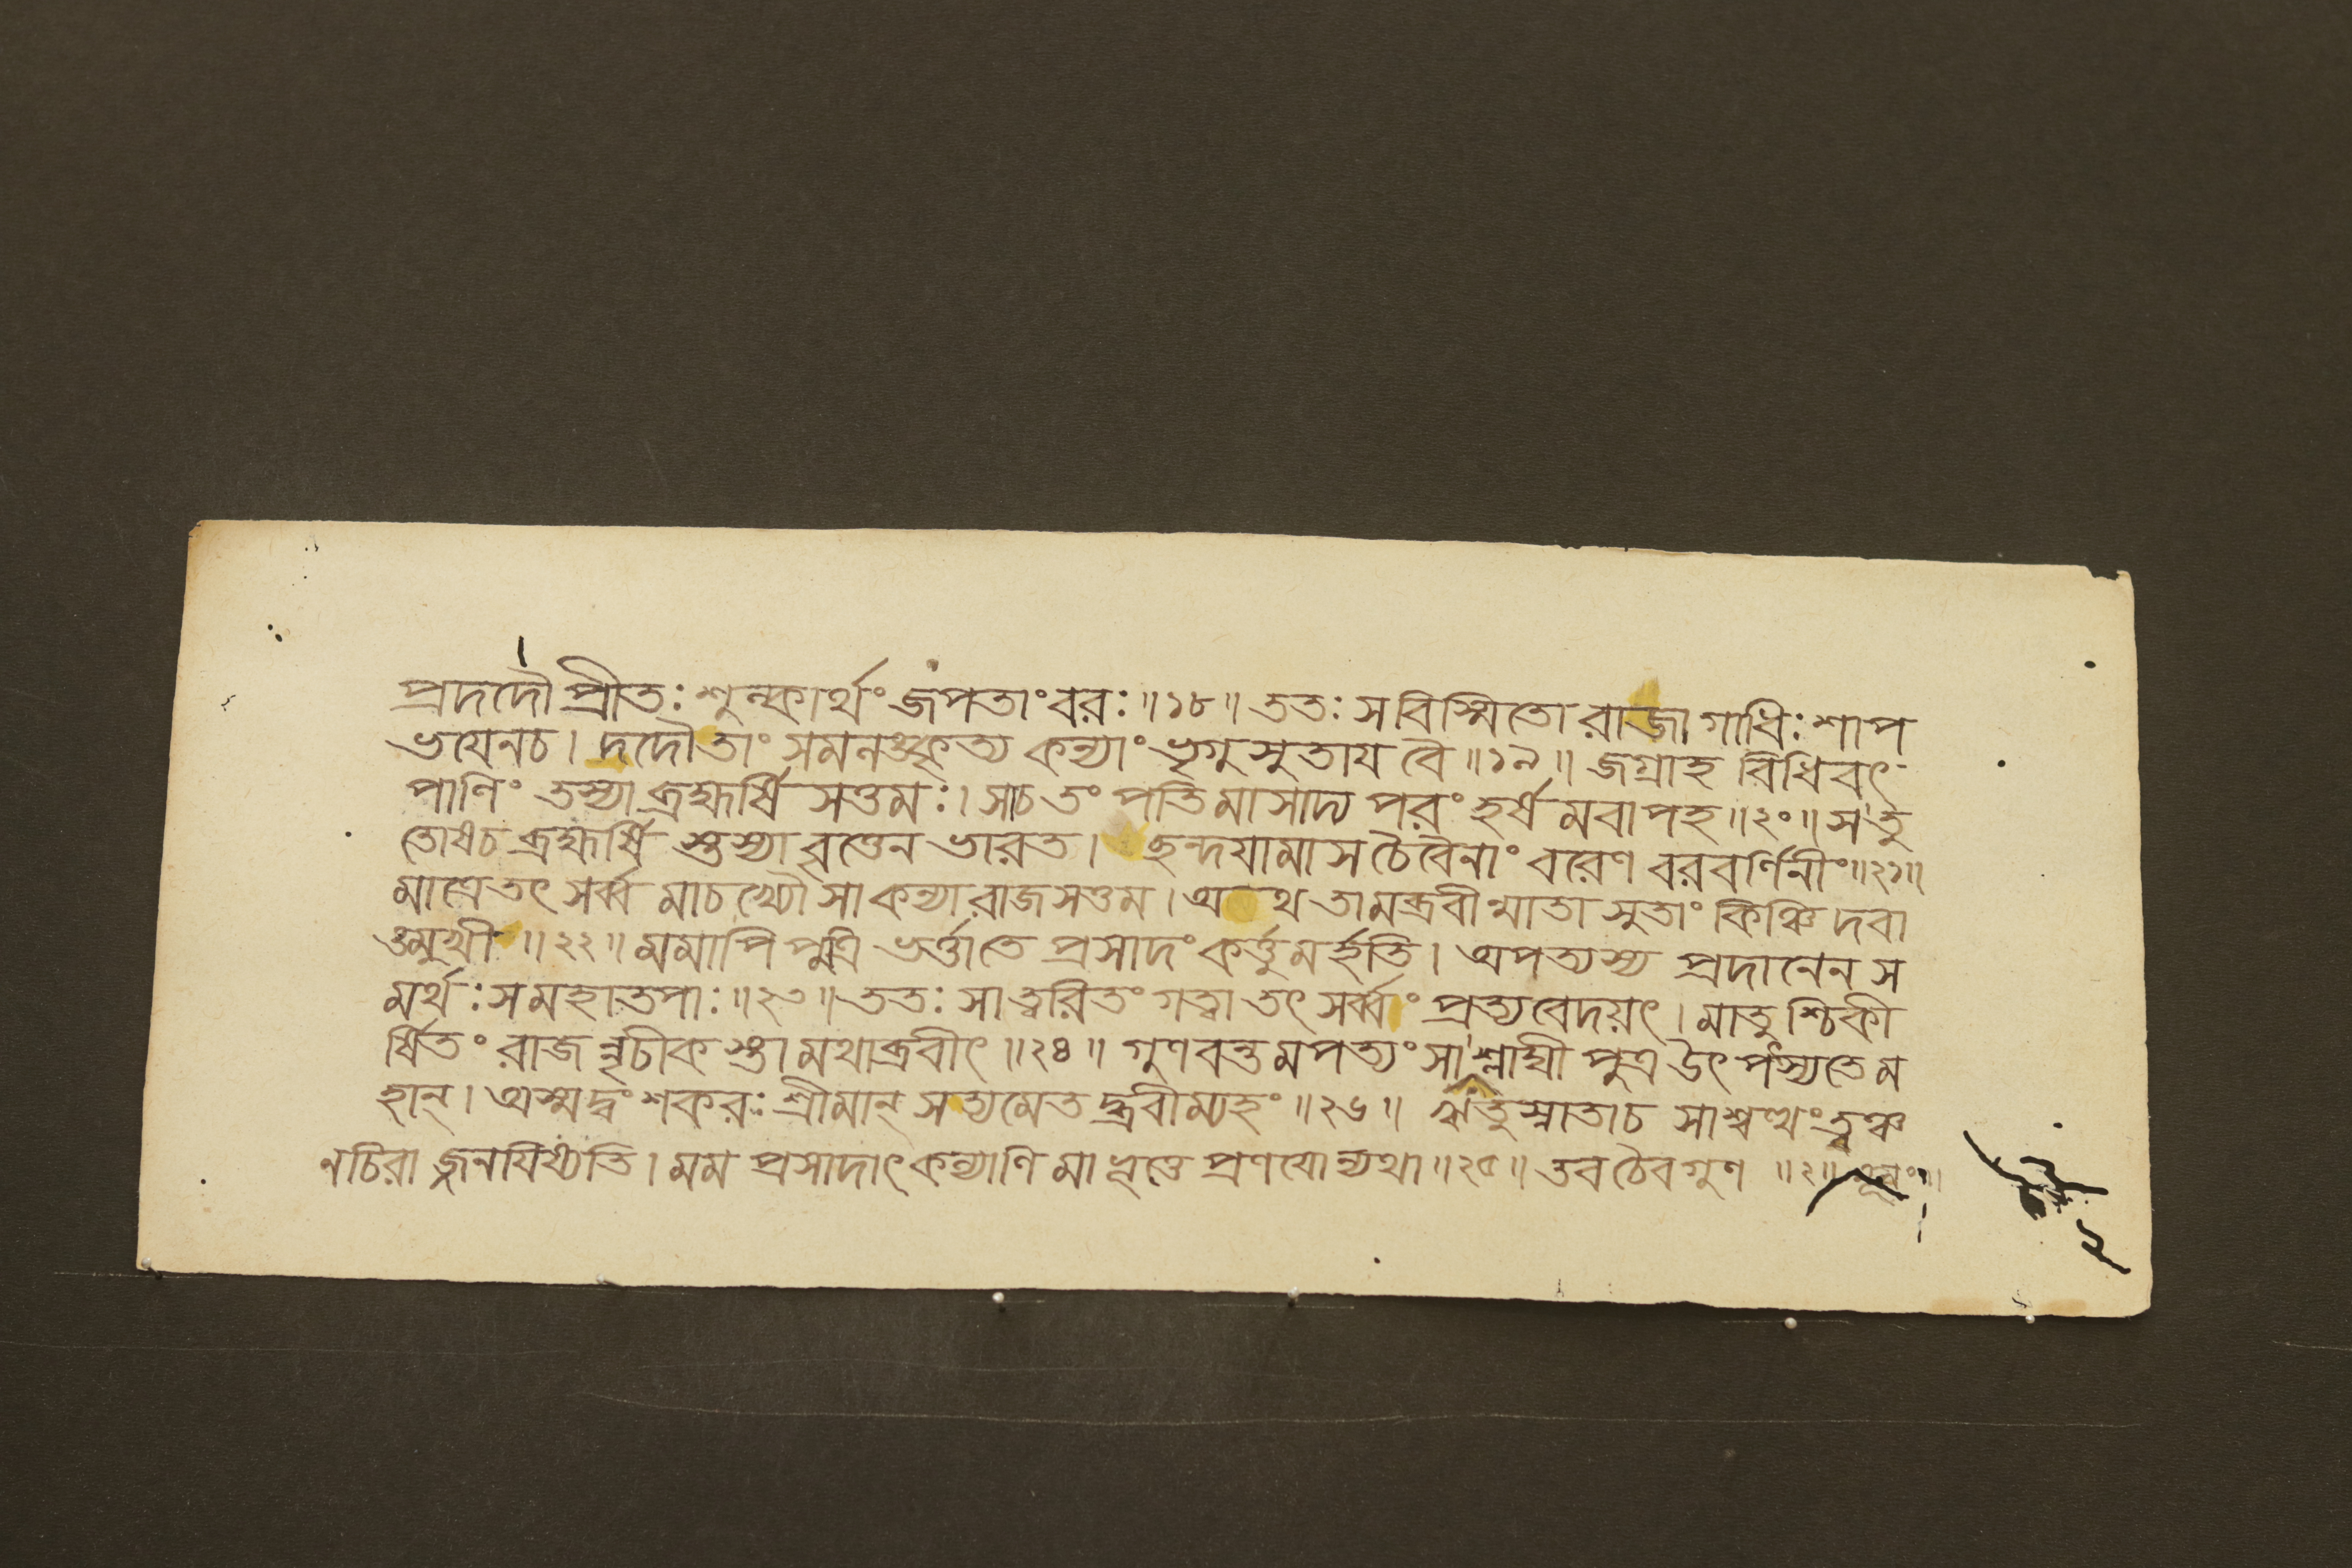 প্রদদৌ প্রীতঃ শুল্কার্থং জপতাং বরঃ ॥১৮॥ ততঃ সবিস্মিতো রাজা গাধিঃ শাপ
ভয়েনচ । দদৌ তাং সমলঙ্কৃত্য কন্যাং ভৃগুসুতায় বৈ ॥১৯॥ জগ্রাহ বিধিবৎ
পাণিং তস্যা ব্রহ্মর্ষি সত্তমঃ । সাচ তং পতিমাসাদ্য পরং হর্ষমবাপহ ॥২০॥ সতু
তোষচ ব্রহ্মর্ষি স্তস্যা বৃত্তেন ভারত । ছন্দয়ামাস চৈবৈনাং বরেণ বরবর্ণিনীং ॥২১॥
মাত্রে তৎ সর্ব্ব মাচখ্যৌ সা কন্যা রাজসত্তম । অথ তামব্রবীন্মাতা সুতাং কিঞ্চিদবা
ঙ্মুখী ॥২২॥ মমাপি পুত্রি ভর্ত্তাতে প্রসাদং কর্ত্তুমর্হতি । অপত্যস্য প্রদানেন স
মর্থঃ সমহাতপাঃ ॥২৩॥ ততঃ সা ত্বরিতং গত্বা তৎ সর্ব্বং প্রত্যবেদয়ৎ । মাতুশ্চিকী
র্ষিতং রাজন্নৃচীক স্তামথাব্রবীৎ ॥২৪॥ গুণবন্তমপত্যং সা শ্লাঘী পুত্র উৎপৎস্যতে ম
হান্ । অস্মদ্বংশকরঃ শ্রীমান্ সত্যমেতদ্ব্রবীম্যহং ॥২৬॥ ঋতুস্নাতাচ সাশ্বত্থং ত্বঞ্চ
নচিরা জ্জনয়িষ্যতি । মম প্রসাদাৎ কল্যাণি মাভূত্তে প্রণয়োন্যথা ॥২৫॥ তব চৈব গুণ ॥২॥
২